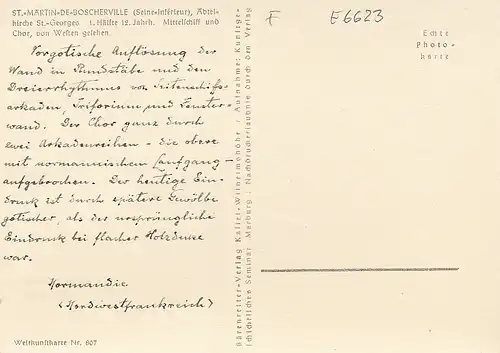 ST.-MARTIN-DE-BOSCHERVILLE (Seine-Inférieur), Abtei-
kirche St.-Georges 1. Hälfte 12. Jahrh. Mittelschiff und
Chor, von Westen gesehen.
Vorgotische Auflösung der
Wand in Rundstäbe und den
Dreierrhythmus von Seitenschiffs-
arkaden, Triforium, und Fenster-
wand. Der Chor ganz durch
zwei Arkadenreihen - die obere
mit normannischem Laufgang -
aufgebrochen. Der heutige Ein-
druck ist durch spätere Gewölbe
gotischer, als der ursprüngliche
Eindruck bei flacher Holzdecke
war.
Normandie
(Nordwestfrankreich)
Weltkunstkarte Nr. 807
Bärenreiter-Verlag Kassel-Wilhelmshöhe / Aufnahme: Kunstge-
schichtliches Seminar Marburg / Nachdruckerlaubnis durch den Verlag
F E6623
Echte
Photo-
karte